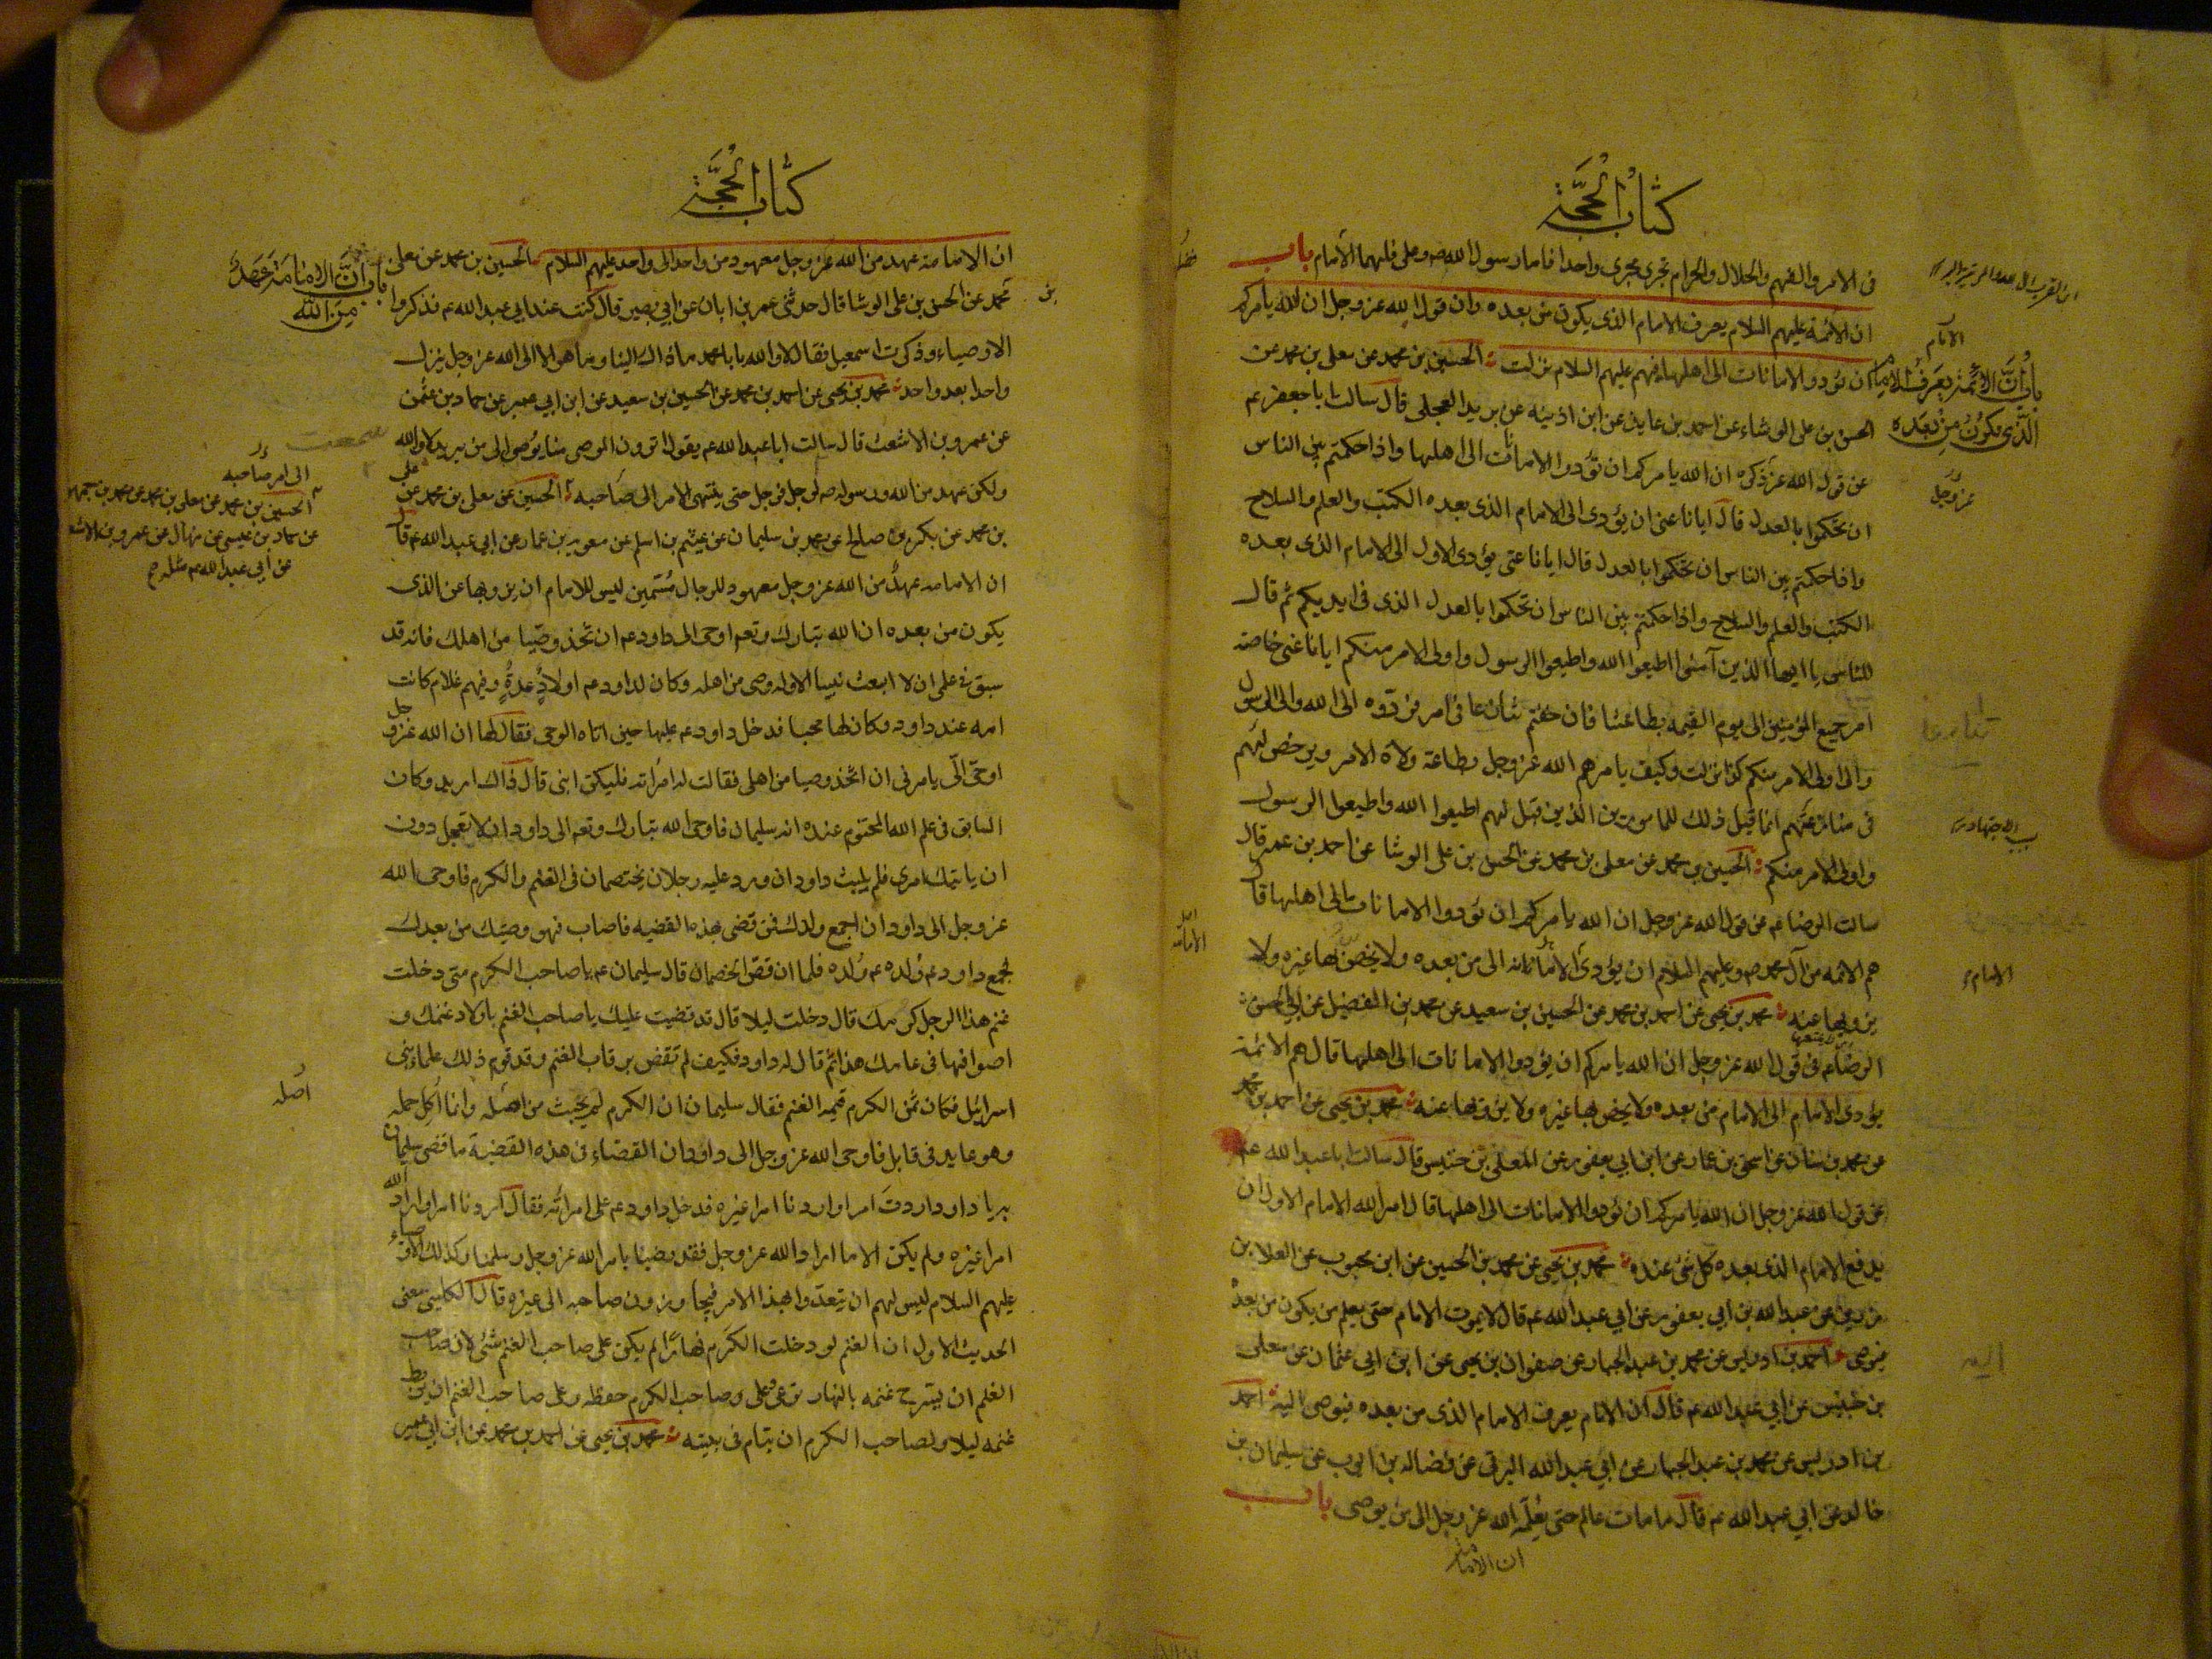 كتاب الحجة
فى الامر والفهم والحلال والحرام نجرى مجرى واحدا فاما رسول الله ص وعلى فلهما الامام باب
ان الائمة عليهم السلام يعرف الامام الذى يكون من بعده وان قول الله عز وجل ان الله يأمركم
ان تؤدوا الامانات الى اهلها فيهم عليهم السلام نزلت الحسين بن محمد عن معلى بن محمد عن
الحسن بن على الوشاء عن احمد بن عايذ عن ابن اذينه عن بريد العجلى قال سالت ابا جعفر عم
عن قول الله عز ذكره ان الله يامركم ان تؤدوا الامانات الى اهلها واذا حكمتم بين الناس
ان تحكموا بالعدل قال ايانا عنى ان يؤدى الى الامام الذى بعده الكتب والعلم والسلاح
واذا حكمتم بين الناس ان تحكموا بالعدل قال ايانا عنى يؤدى الاول الى الامام الذى بعده
الكتب والعلم والسلاح واذا حكمتم بين الناس ان تحكموا بالعدل الذى فى ايديكم ثم قال
للناس يا ايها الذين آمنوا اطيعوا الله واطيعوا الرسول واولى الامر منكم ايانا عنى خاصة
امر جميع المؤمنين الى يوم القيمه بطاعتنا فان خفتم تنازعا فى امر فردوه الى الله والى الرسول
والى اولى الامر منكم كذا نزلت وكيف يامرهم الله عز وجل بطاعة ولاة الامر ويرخص لهم
فى منازعتهم انما قيل ذلك للمامورين الذين قيل لهم اطيعوا الله واطيعوا الرسول
واولى الامر منكم الحسين بن محمد عن معلى بن محمد عن الحسن بن على الوشا عن احمد بن عمر قال
سالت الرضا عم عن قول الله عز وجل ان الله يامركم ان تؤدوا الامانات الى اهلها قال
هم الائمه من آل محمد ص وعليهم السلام ان يؤدى الامانة الى من بعده ولا يخص بها غيره ولا
يزويها عنه محمد بن يحيى عن احمد بن محمد عن الحسين بن سعيد عن محمد بن الفضيل عن ابى الحسن
الرضا عم فى قول الله عز وجل ان الله يامركم ان يؤدوا الامانات الى اهلها قال هم الائمة
يؤدى الامام الى الامام من بعده ولا يخص بها غيره ولا يزويها عنه محمد بن يحيى عن احمد بن محمد
عن محمد بن سنان عن اسحق بن عمار عن ابن ابى يعفور عن المعلى بن خنيس قال سالت ابا عبد الله عم
عن قول الله عز وجل ان الله يامركم ان تؤدوا الامانات الى اهلها قال امر الله الامام الاول ان
يدفع الامام الذى بعده كل شئ عنده محمد بن يحيى عن محمد بن الحسين عن ابن محبوب عن العلا بن
رزين عن عبد الله بن ابى يعفور عن ابى عبد الله عم قال لا يموت الامام حتى يعلم من يكون من بعده
فيوصى احمد بن ادريس عن محمد بن عبد الجبار عن صفوان بن يحيى عن ابن ابى عثمان عن معلى
بن خنيس عن ابى عبد الله عم قال ان الامام يعرف الامام الذى من بعده فيوصى اليه احمد
بن ادريس عن محمد بن عبد الجبار عن ابى عبد الله البرقى عن فضاله بن ايوب عن سليمان بن
خالد عن ابى عبد الله عم قال ما مات عالم حتى يعلمه الله عز وجل الى من يوصى باب
ان الامامة
الامام
باب ان الائمة يعرف الامام
الذى يكون من بعده
عز وجل
الامام
كتاب الحجة
ان الامامة عهد من الله عز وجل معهود من واحد الى واحد عليهم السلام الحسين بن محمد عن معلى بن
محمد عن الحسن بن على الوشا قال حدثنى عمر بن ابان عن ابى بصير قال كنت عند ابى عبد الله عم فذكروا
الاوصياء وذكرت اسمعيل فقال لا والله يا با محمد ما ذاك الينا وما هو الا الى الله عز وجل ينزل
واحدا بعد واحد محمد بن يحيى عن احمد بن محمد عن الحسين بن سعيد عن ابن ابى عمير عن حماد بن عثمن
عن عمرو بن الاشعث قال سالت ابا عبد الله عم يقول اترون الموصى منا يوصى الى من يريد لا والله
ولكن عهد من الله ورسوله ص لرجل فرجل حتى ينتهى الامر الى صاحبه الحسين عن معلى بن محمد عن على
بن محمد عن بكر بن صالح عن محمد بن سليمان عن عيثم بن اسلم عن معوية بن عمار عن ابى عبد الله عم قال
ان الامامه عهد من الله عز وجل معهود للرجال مسمين ليس للامام ان يزويها عن الذى
يكون من بعده ان الله تبارك وتعم اوحى الى داود عم ان تخذ وصيا من اهلك فانه قد
سبق فى علمى ان لا ابعث نبيا الا وله وصى من اهله وكان لداود عم اولاد عدة وفيهم غلام كانت
امه عند داود وكان لها محبا فدخل داود عم عليها حين اتاه الوحى فقال لها ان الله عز وجل
اوحى الى يامرنى ان اتخذ وصيا من اهلى فقالت له امراته فليكن ابنى قال ذاك اريد وكان
السابق فى علم الله المحتوم عنده انه سليمان فاوحى الله تبارك وتعم الى داود ان لا تعجل دون
ان ياتيك امرى فلم يلبث داود ان ورد عليه رجلان يختصمان فى الغنم والكرم فاوحى الله
عز وجل الى داود ان اجمع ولدك فمن قضى بهذه القضيه فاصاب فهو وصيك من بعدك
فجمع داود عم ولده فلما ان قص الخصمان قال سليمان عم يا صاحب الكرم متى دخلت
غنم هذا الرجل كرمك قال دخلت ليلا قال قد قضيت عليك يا صاحب الغنم باولاد غنمك و
اصوافها فى عامك هذا ثم قال له داود فكيف لم تقض برقاب الغنم وقد قوم ذلك علماء بنى
اسرائيل فكان ثمن الكرم قيمة الغنم فقال سليمان ان الكرم لم يجتث من اصله وانما اكل حمله
وهو عايد فى قابل فاوحى الله عز وجل الى داود ان القضاء فى هذه القضية ما قضى سليمان
به يا داود اردت امرا واردنا امرا غيره فدخل داود عم على امراته فقال اردنا امرا واراد الله
امرا غيره ولم يكن الا ما اراد الله عز وجل فقد رضينا بامر الله عز وجل وسلمنا وكذلك الاوصياء
عليهم السلام ليس لهم ان يتعدوا بهذا الامر فيجاوزون صاحبه الى غيره قال الكلينى معنى
الحديث الاول ان الغنم لو دخلت الكرم نهارا لم يكن على صاحب الغنم شئ لان صاحب
الغلم ان يسرح غنمه بالنهار ترعى وعلى صاحب الكرم حفظه وعلى صاحب الغنم ان يربط
غنمه ليلا ولصاحب الكرم ان ينام فى بيته محمد بن يحيى عن احمد بن محمد عن ابن ابى عمير
باب ان الامامة عهد
من الله
بن
الى امر صاحبه
الحسين بن محمد عن معلى بن محمد عن محمد بن جمهور
عن حماد بن عيسى عن منهال عن عمرو بن الاشعث
عن ابى عبد الله عم مثله
اصله